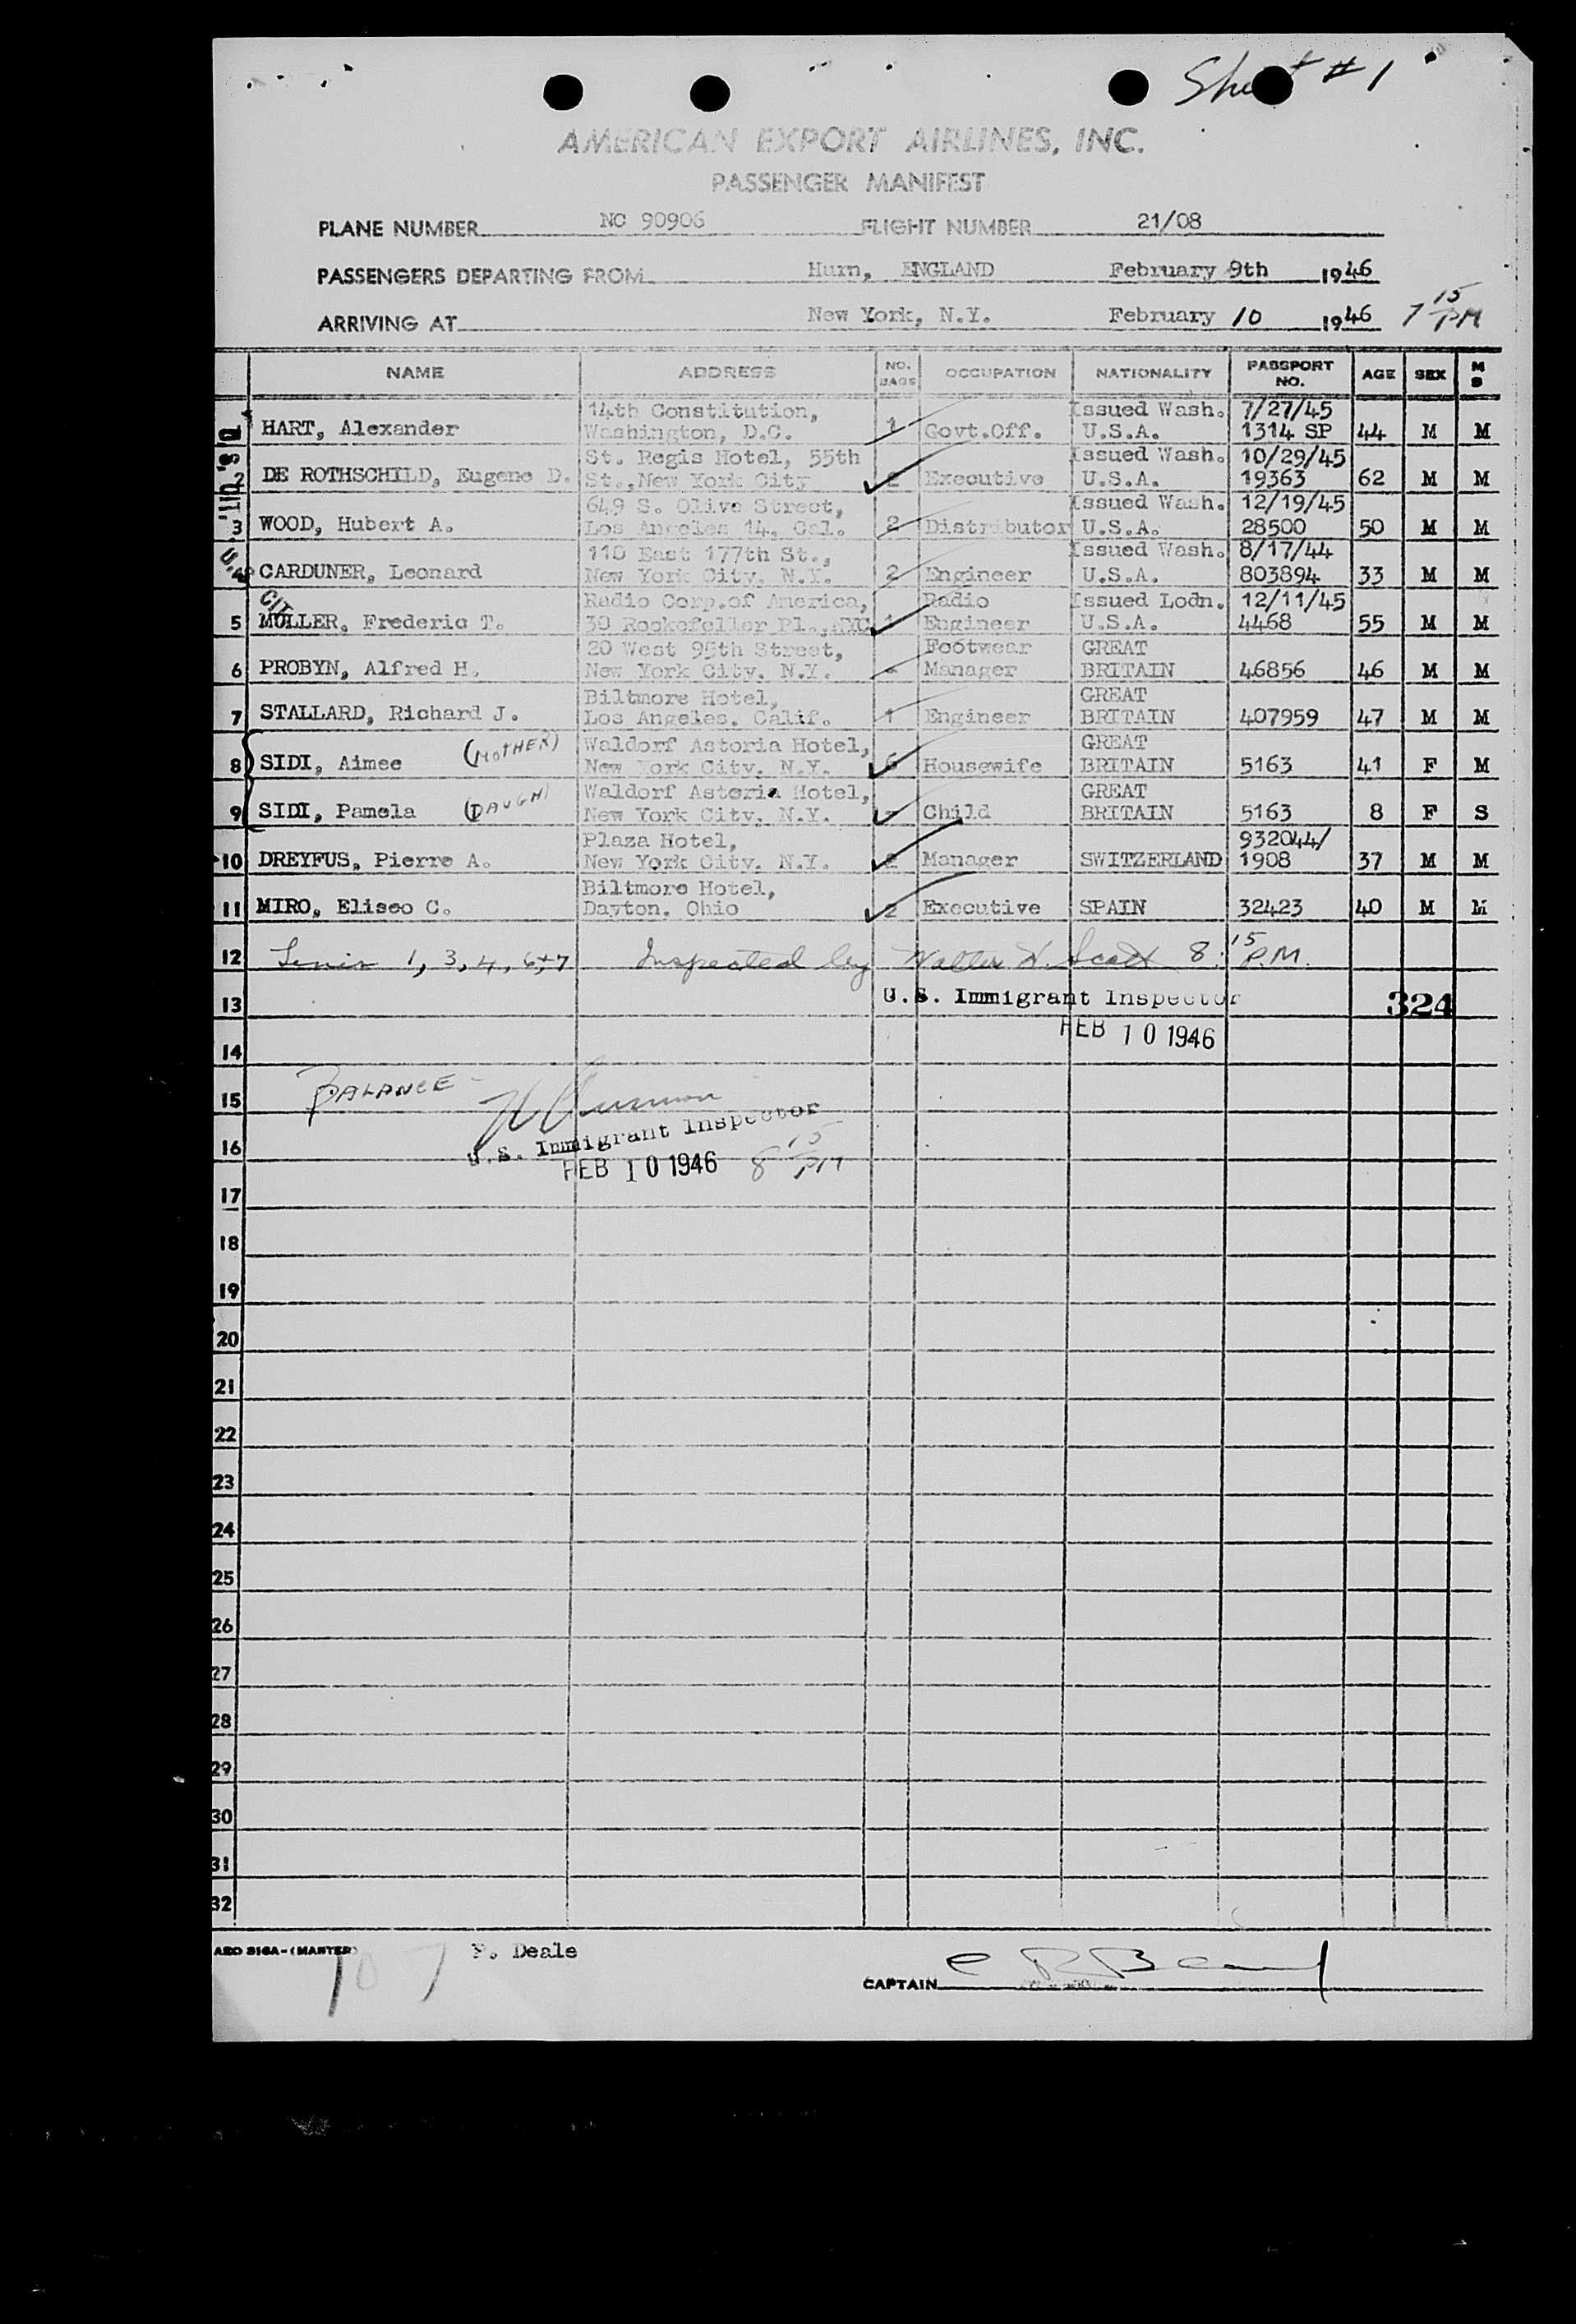 Sheet #1
AMERICAN EXPORT AIRLINES, INC.
PASSENGER MANIFEST
PLANE NUMBER NC 90906 FLIGHT NUMBER 21/08
PASSENGERS DEPARTING FROM Hurn, ENGLAND February 9th 1946
ARRIVING AT New York, N.Y. February 10 1946 7 15 PM
NAME ADDRESS NO. BAGS OCCUPATION NATIONALITY PASSPORT NO. AGE SEX M S
14th Constitution, Issued Wash. 7/27/45
HART, Alexander Washington, D.C. 1 Govt.Off. U.S.A. 1314 SP 44 M M
St. Regis Hotel, 55th Issued Wash. 10/29/45
2 DE ROTHSCHILD, Eugene D. St.,New York City 2 Executive U.S.A. 19363 62 M M
649 S. Olive Street, Issued Wash. 12/19/45
3 WOOD, Hubert A. Los Angeles 14, Cal. 2 Distributor U.S.A. 28500 50 M M
110 East 177th St., Issued Wash. 8/17/44
4 CARDUNER, Leonard New York City, N.Y. 2 Engineer U.S.A. 803894 33 M M
CIT Radio Corp.of America, Radio Issued Lodn. 12/11/45
5 MULLER, Frederic T. 30 Rockefeller Pl.,NYC 1 Engineer U.S.A. 4468 55 M M
20 West 95th Street, Footwear GREAT
6 PROBYN, Alfred H. New York City, N.Y. Manager BRITAIN 46856 46 M M
Biltmore Hotel, GREAT
7 STALLARD, Richard J. Los Angeles, Calif. 1 Engineer BRITAIN 407959 47 M M
Waldorf Astoria Hotel, GREAT
8 SIDI, Aimee (MOTHER) New York City, N.Y. 6 Housewife BRITAIN 5163 41 F M
Waldorf Astoria Hotel, GREAT
9 SIDI, Pamela (DAUGH) New York City, N.Y. - Child BRITAIN 5163 8 F S
Plaza Hotel, 932044/
10 DREYFUS, Pierre A. New York City, N.Y. 2 Manager SWITZERLAND 1908 37 M M
Biltmore Hotel,
11 MIRO, Eliseo C. Dayton, Ohio 2 Executive SPAIN 32423 40 M M
12 1, 3, 4, 6, + 7 Inspected by Walter H. Scott 8:15 P.M.
13 U.S. Immigrant Inspector 324
FEB 10 1946
14
BALANCE -
15
U.S. Immigrant Inspector
16
FEB 10 1946 8 15 PM
17
18
19
20
21
22
23
24
25
26
27
28
29
30
31
32
AEO 816A-(MASTER) P. Deale
107
CAPTAIN